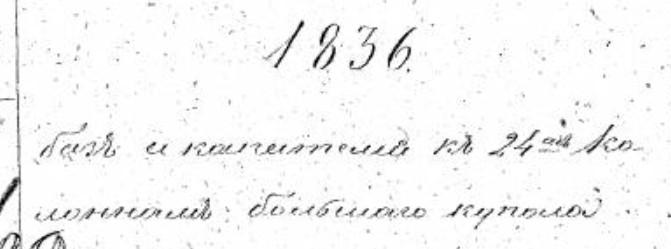 1836.
базъ и капителей къ 24мъ ко-
лоннамъ большаго купола